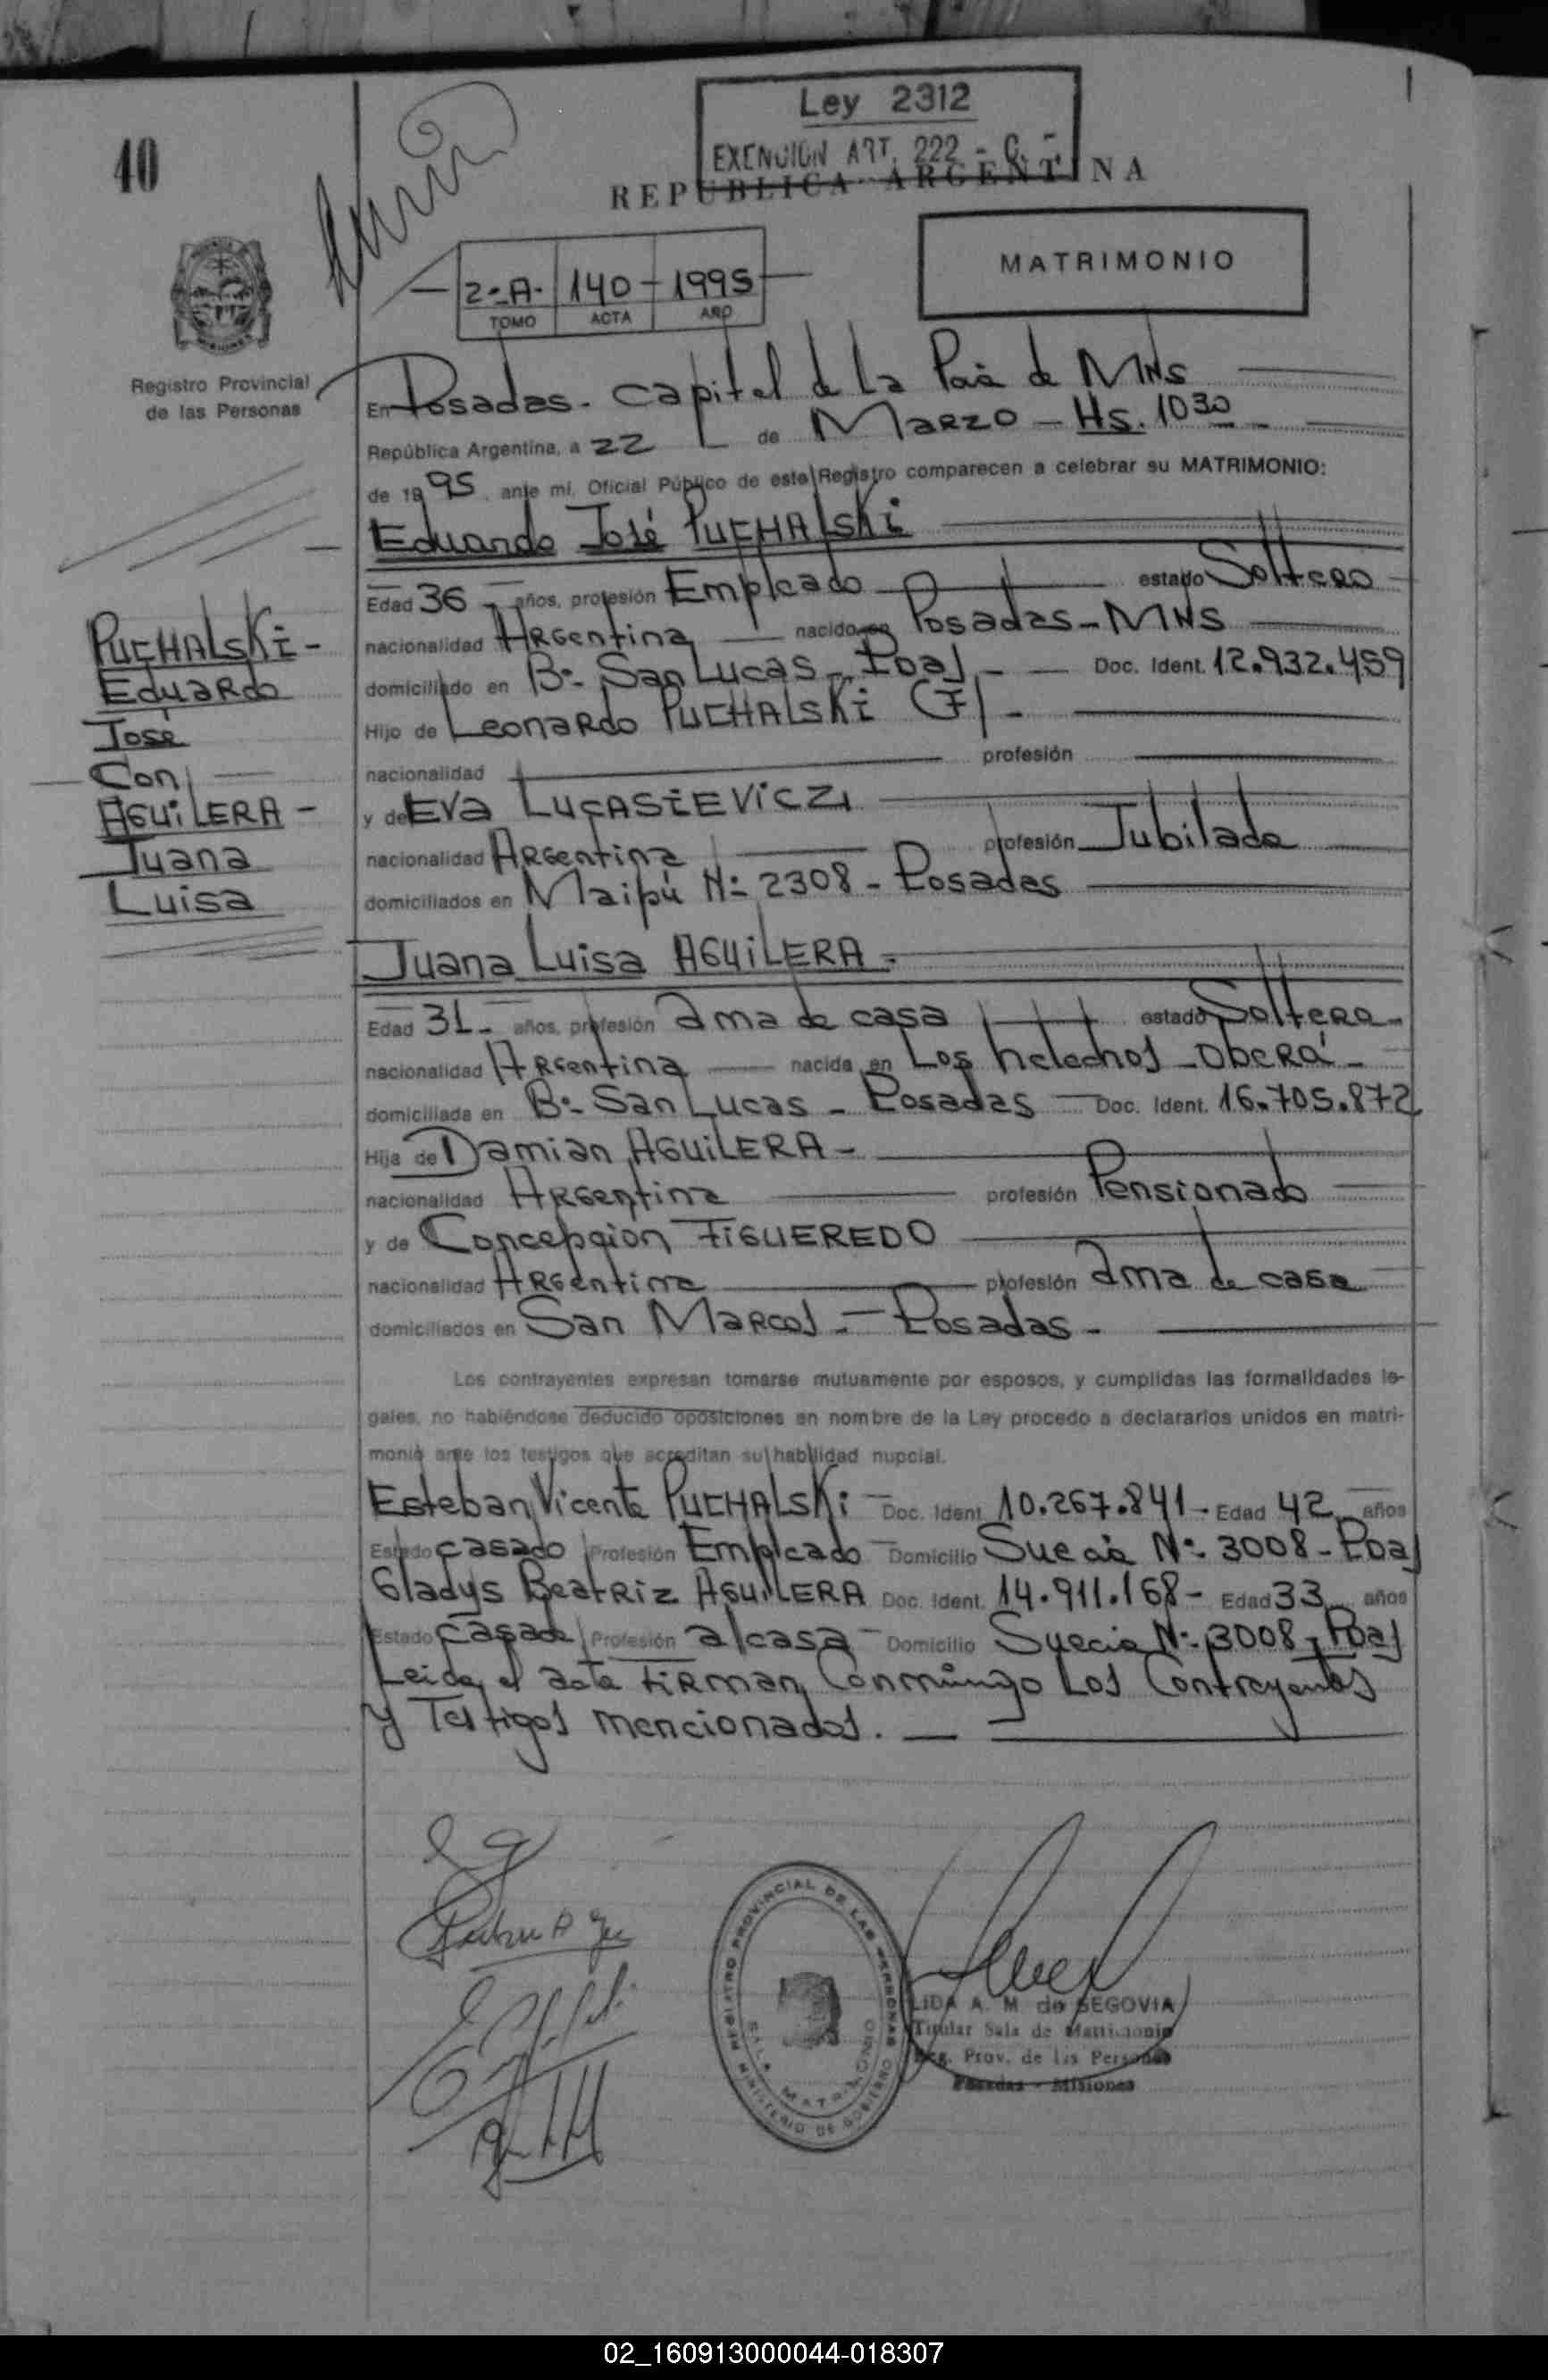 Ley 2312
EXENCIÓN ART. 222 - C. -
40
REPUBLICA ARGENTINA
MATRIMONIO
2º-A- 140 - 1995
TOMO ACTA AÑO
Registro Provincial
de las Personas
En Posadas - Capital de La Pcia de MNS
República Argentina, a 22 de Marzo - Hs. 10 30
de 1995, ante mí, Oficial Público de este Registro comparecen a celebrar su MATRIMONIO:
Eduardo José PUCHALSKI
Edad 36 - años, profesión Empleado estado Soltero
nacionalidad Argentina nacido en Posadas - MNS
domiciliado en Bº- San Lucas - Pdas - Doc. Ident. 12.932.459
Hijo de Leonardo PUCHALSKI (F) -
nacionalidad profesión
y de Eva LUCASIEVICZ
nacionalidad Argentina profesión Jubilada
domiciliados en Maipú Nº 2308 - Posadas
PUCHALSKI -
Eduardo
José
Con
AGUILERA -
Juana
Luisa
Juana Luisa AGUILERA -
Edad 31 - años, profesión ama de casa estado Soltera -
nacionalidad Argentina nacida en Los helechos - Oberá -
domiciliada en Bº- San Lucas - Posadas Doc. Ident. 16.705.872
Hija de Damian AGUILERA -
nacionalidad Argentina profesión Pensionado
y de Concepcion FIGUEREDO
nacionalidad Argentina profesión ama de casa
domiciliados en San Marcos - Posadas -
Los contrayentes expresan tomarse mutuamente por esposos, y cumplidas las formalidades le-
gales, no habiéndose deducido oposiciones en nombre de la Ley procedo a declararlos unidos en matri-
monio ante los testigos que acreditan su habilidad nupcial.
Esteban Vicente PUCHALSKI - Doc. Ident. 10.267.841 - Edad 42 años
Estado casado Profesión Empleado - Domicilio Suecia Nº- 3008 - Pdas
Gladys Beatriz AGUILERA Doc. Ident. 14.911.168 - Edad 33 años
Estado Casada Profesión a/casa - Domicilio Suecia Nº- 3008 - Pdas
Leida el acta Firman Conmigo Los Contrayentes
y Testigos mencionados.
REGISTRO PROVINCIAL DE LAS PERSONAS
SALA MATRIMONIO
MINISTERIO DE GOBIERNO
LIDA A. M. de SEGOVIA
Titular Sala de Matrimonio
Reg. Prov. de las Personas
Posadas - Misiones
02_160913000044-018307